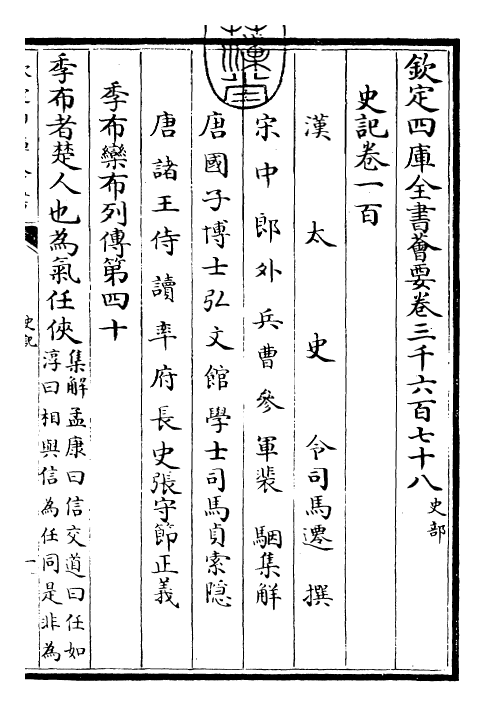 欽定四庫全書薈要卷三千六百七十八 史部
史記卷一百
漢太史令司馬遷撰
宋中郎外兵曹參軍裴駰集解
唐國子博士弘文館學士司馬貞索隱
唐諸王侍讀率府長史張守節正義
季布欒布列傳第四十
季布者楚人也為氣任俠集解孟康曰信交道曰任如
淳曰相與信為任同是非為
史記